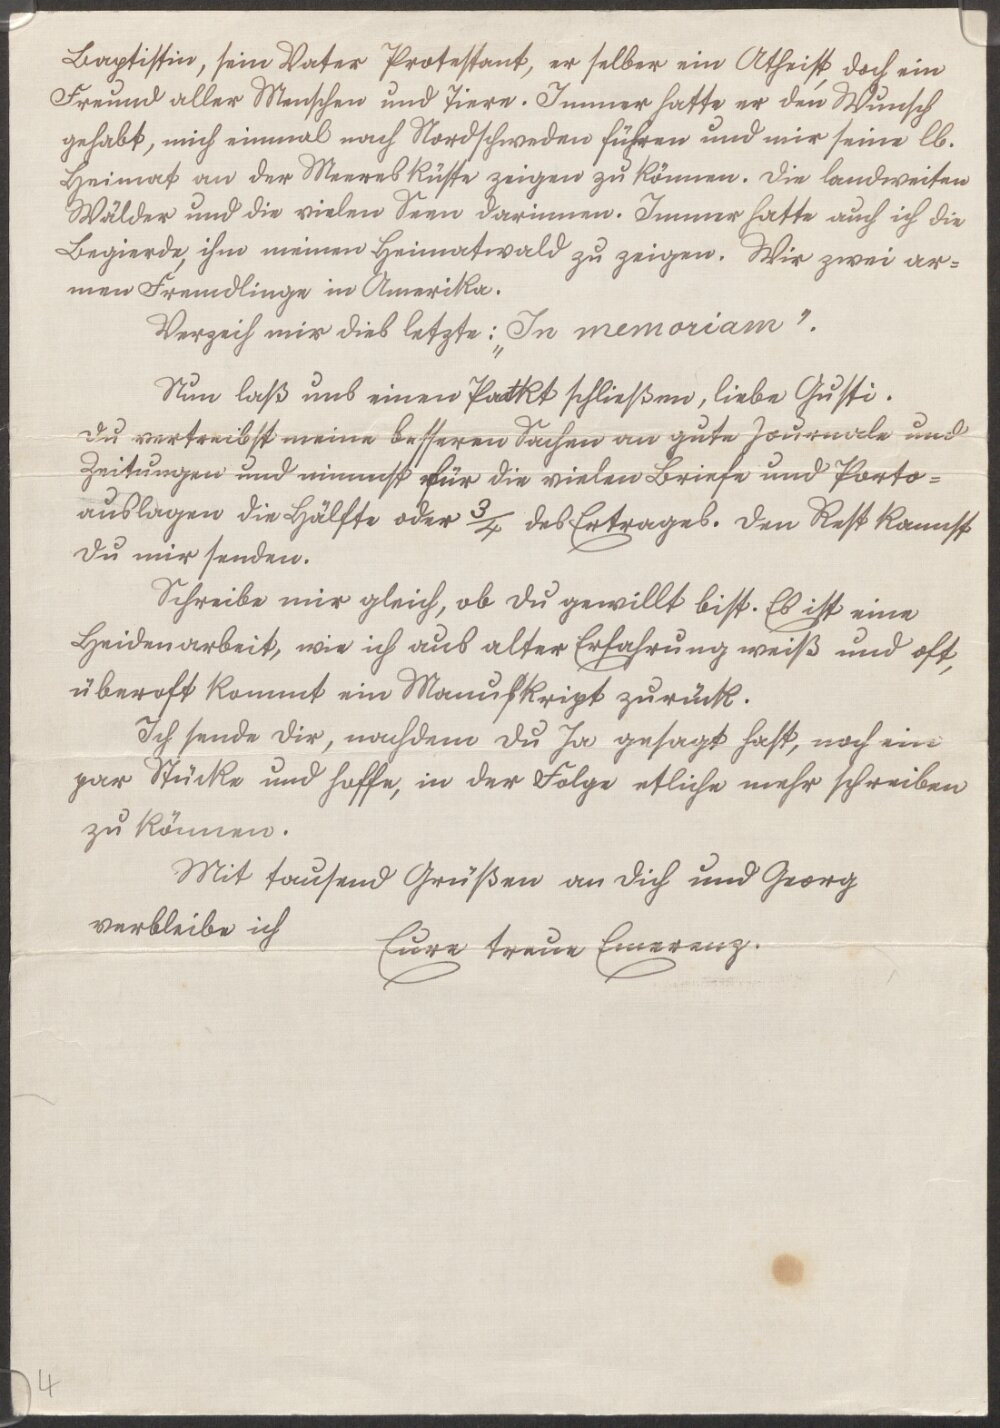 Baptistin, sein Vater Protestant, er selber ein Atheist, doch ein
Freund aller Menschen und Tiere. Immer hatte er den Wunsch
gehabt, mich einmal nach Nordschweden führen und mir seine lb.
Heimat an der Meeresküste zeigen zu können. Die landweiten
Wälder und die vielen Seen darinnen. Immer hatte auch ich die
Begierde, ihm meinen Heimatwald zu zeigen. Wir zwei ar=
men Fremdlinge in Amerika.
Verzeih mir dies letzte: „In memoriam".
Nun laß uns einen Pakt schließen, liebe Gusti.
Du vertreibst meine besseren Sachen an gute Journale und
Zeitungen und nimmst für die vielen Briefe und Porto=
auslagen die Hälfte oder 3/4 des Ertrages. Den Rest kannst
Du mir senden.
Schreibe mir gleich, ob Du gewillt bist. Es ist eine
Heidenarbeit, wie ich aus alter Erfahrung weiß und oft,
überoft kommt ein Manuskript zurück.
Ich sende Dir, nachdem Du Ja gesagt hast, noch ein
par Stücke und hoffe, in der Folge etliche mehr schreiben
zu können.
Mit tausend Grüßen an Dich und Georg
verbleibe ich
Eure treue Emerenz.
4